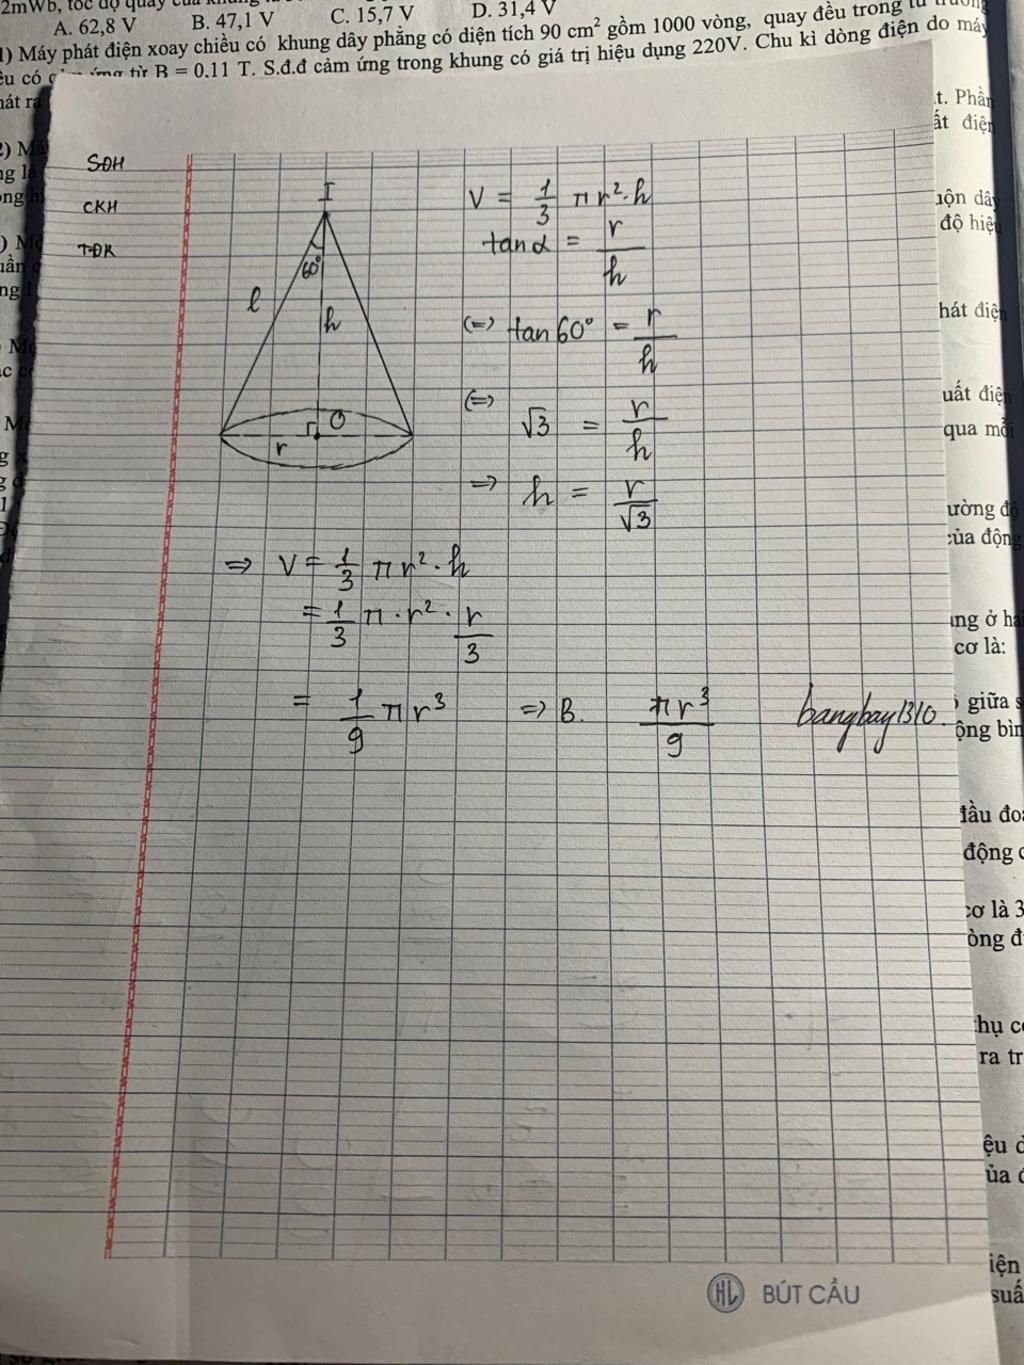 2mWb, tốc độ quay của khung
A. 62,8 V B. 47,1 V C. 15,7 V D. 31,4 V
1) Máy phát điện xoay chiều có khung dây phẳng có diện tích 90 cm² gồm 1000 vòng, quay đều trong từ trường
ều có ứng từ B = 0.11 T. S.đ.đ cảm ứng trong khung có giá trị hiệu dụng 220V. Chu kì dòng điện do máy
hát ra
t. Phần
ất điện
SOH
CKH
TĐK
I
60°
l
h
O
r
V = 1/3 πr².h
tanα = r/h
(=) tan60° = r/h
(=) √3 = r/h
=> h = r/√3
=> V = 1/3 πr².h
= 1/3 π.r².r/3
= 1/9 πr³ => B. πr³/9 bangbay1310.
uộn dây
độ hiệu
hát điện
uất điện
qua mỗi
ường độ
của động
ng ở ha
cơ là:
giữa s
ộng bìn
đầu đoạ
động c
cơ là 3
òng đ
hụ cô
ra tr
ệu d
ủa đ
iện
suấ
HL BÚT CẦU